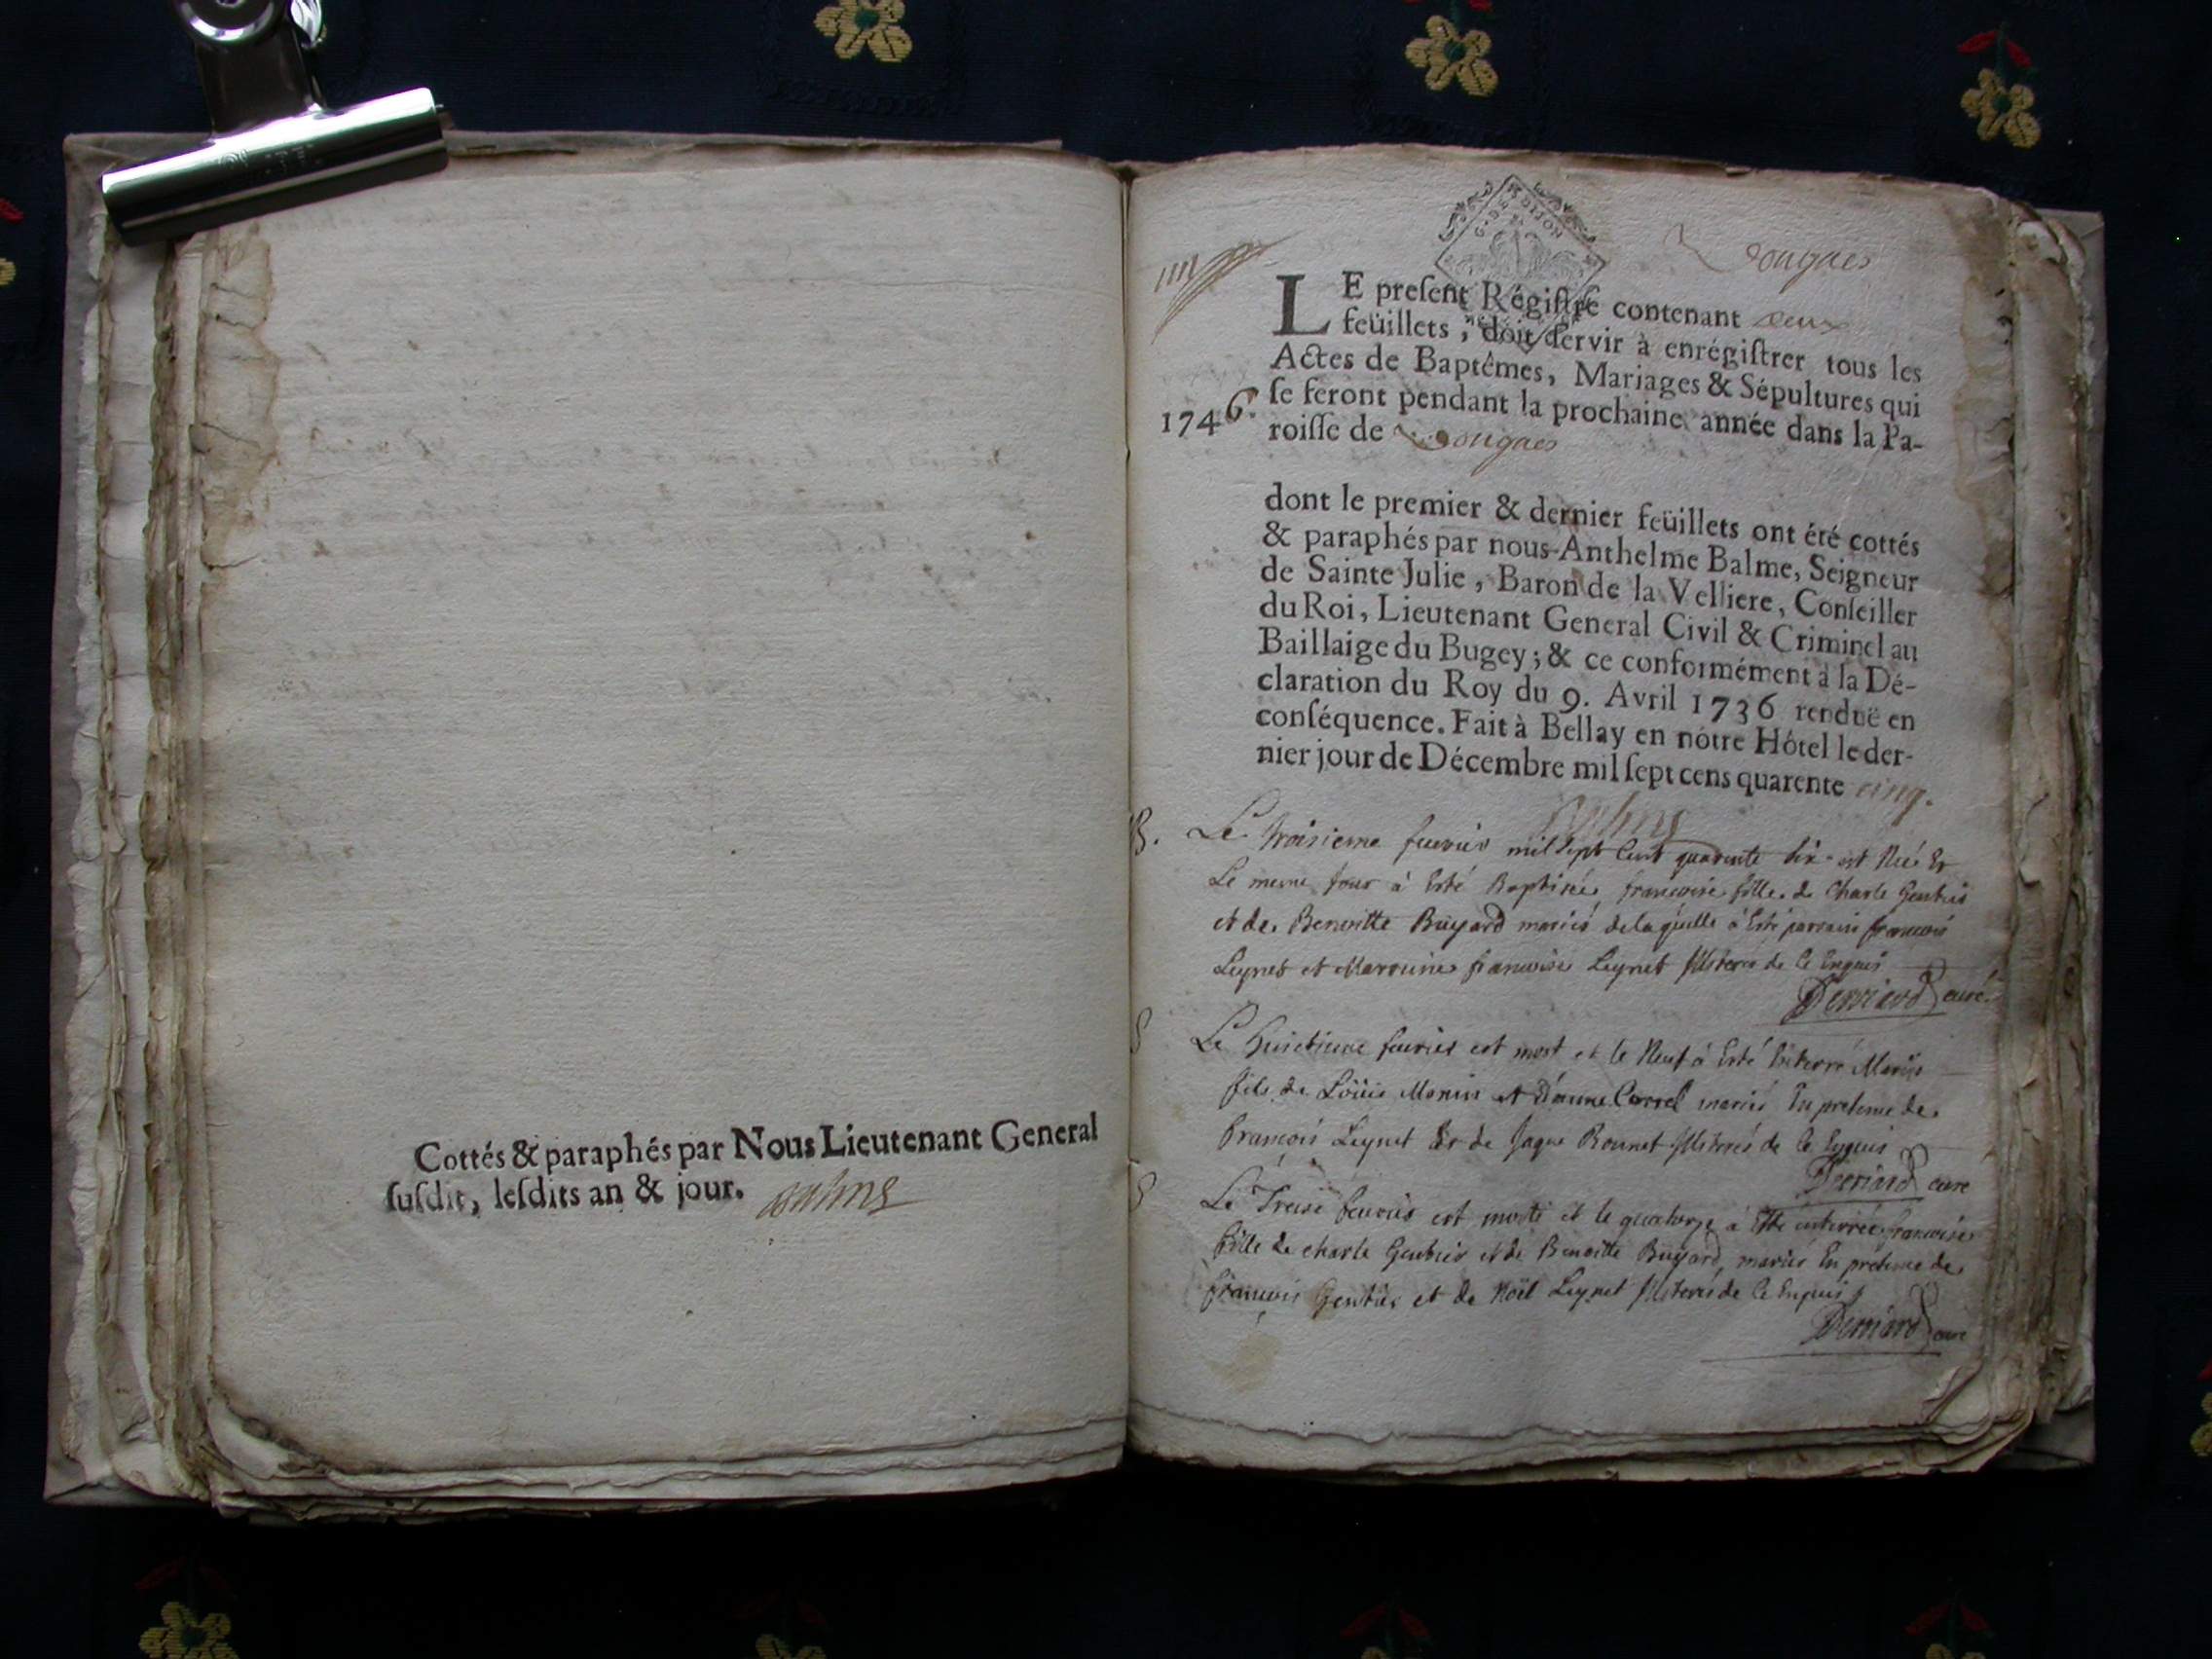 Cottés & paraphés par Nous Lieutenant General
ſuſdit, leſdits an & jour. Balme
G. DE DIJON
Dongaes
LE preſent Régiſtre contenant deux
feüillets, doit ſervir à enrégiſtrer tous les
Actes de Baptêmes, Mariages & Sépultures qui
1746. ſe feront pendant la prochaine année dans la Pa-
roiſſe de Dongaes
dont le premier & dernier feüillets ont été cottés
& paraphés par nous Anthelme Balme, Seigneur
de Sainte Julie, Baron de la Velliere, Conſeiller
du Roi, Lieutenant General Civil & Criminel au
Baillaige du Bugey; & ce conformément à la Dé-
claration du Roy du 9. Avril 1736 renduë en
conſéquence. Fait à Bellay en nôtre Hôtel le der-
nier jour de Décembre mil ſept cens quarente cinq.
Balme
B. Le troisieme feuvrier mil sept cent quarente six est Née Et
Le meme jour à Esté Baptisée francoise fille de Charle
et de Benoitte Buyard mariés delaquelle à Esté parrain francois
Leynet et Marraine francoise Leynet Illiterés de ce Enquis
curé
S Le huictieme feuvrier est mort et le Neuf à Esté Enterré
fils de Loüis Monin et mariés En presence de
francois Leynet Et de Jaque Bonnet Illiterés de ce Enquis
curé
S Le Treise feuvrier est morte et le quatorze à Esté enterrée francoise
fille de charle et de Benoitte Buyard mariés En presence de
francois et de Noël Leynet Illiterés de ce Enquis
curé